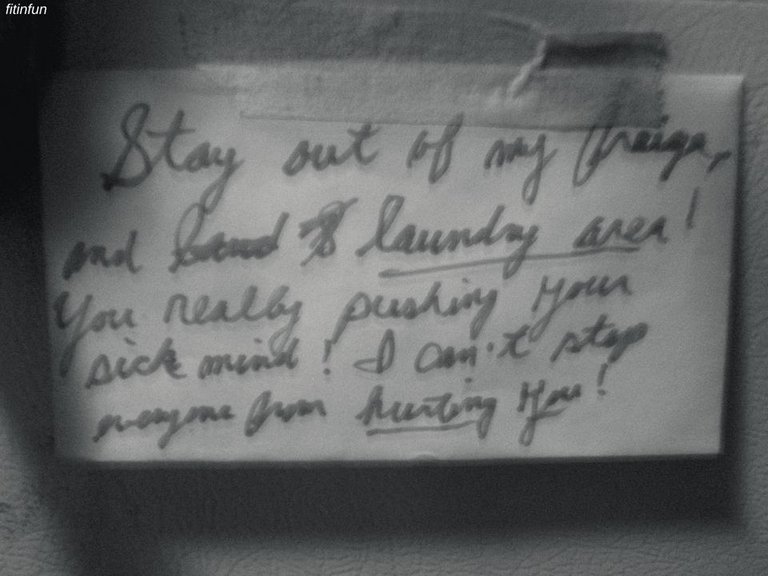 fitinfun
Stay out of my
and laundry area!
You really pushing your
sick mind! I can't stop
everyone from hurting you!